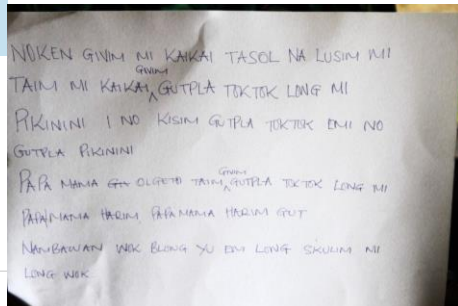 NOKEN GIVIM MI KAIKAI TASOL NA LUSIM MI
TAIM MI KAIKAI GIVIM GUTPLA TOKTOK LONG MI
PIKININI I NO KISIM GUTPLA TOKTOK EMI NO
GUTPLA PIKININI
PAPA MAMA OLGETI TAIM GIVIM GUTPLA TOKTOK LONG MI
PAPA MAMA HARIM, PAPA MAMA HARIM GUT
NAMBAWAN WOK BLONG YU EM LONG SKULIM MI
LONG WOK